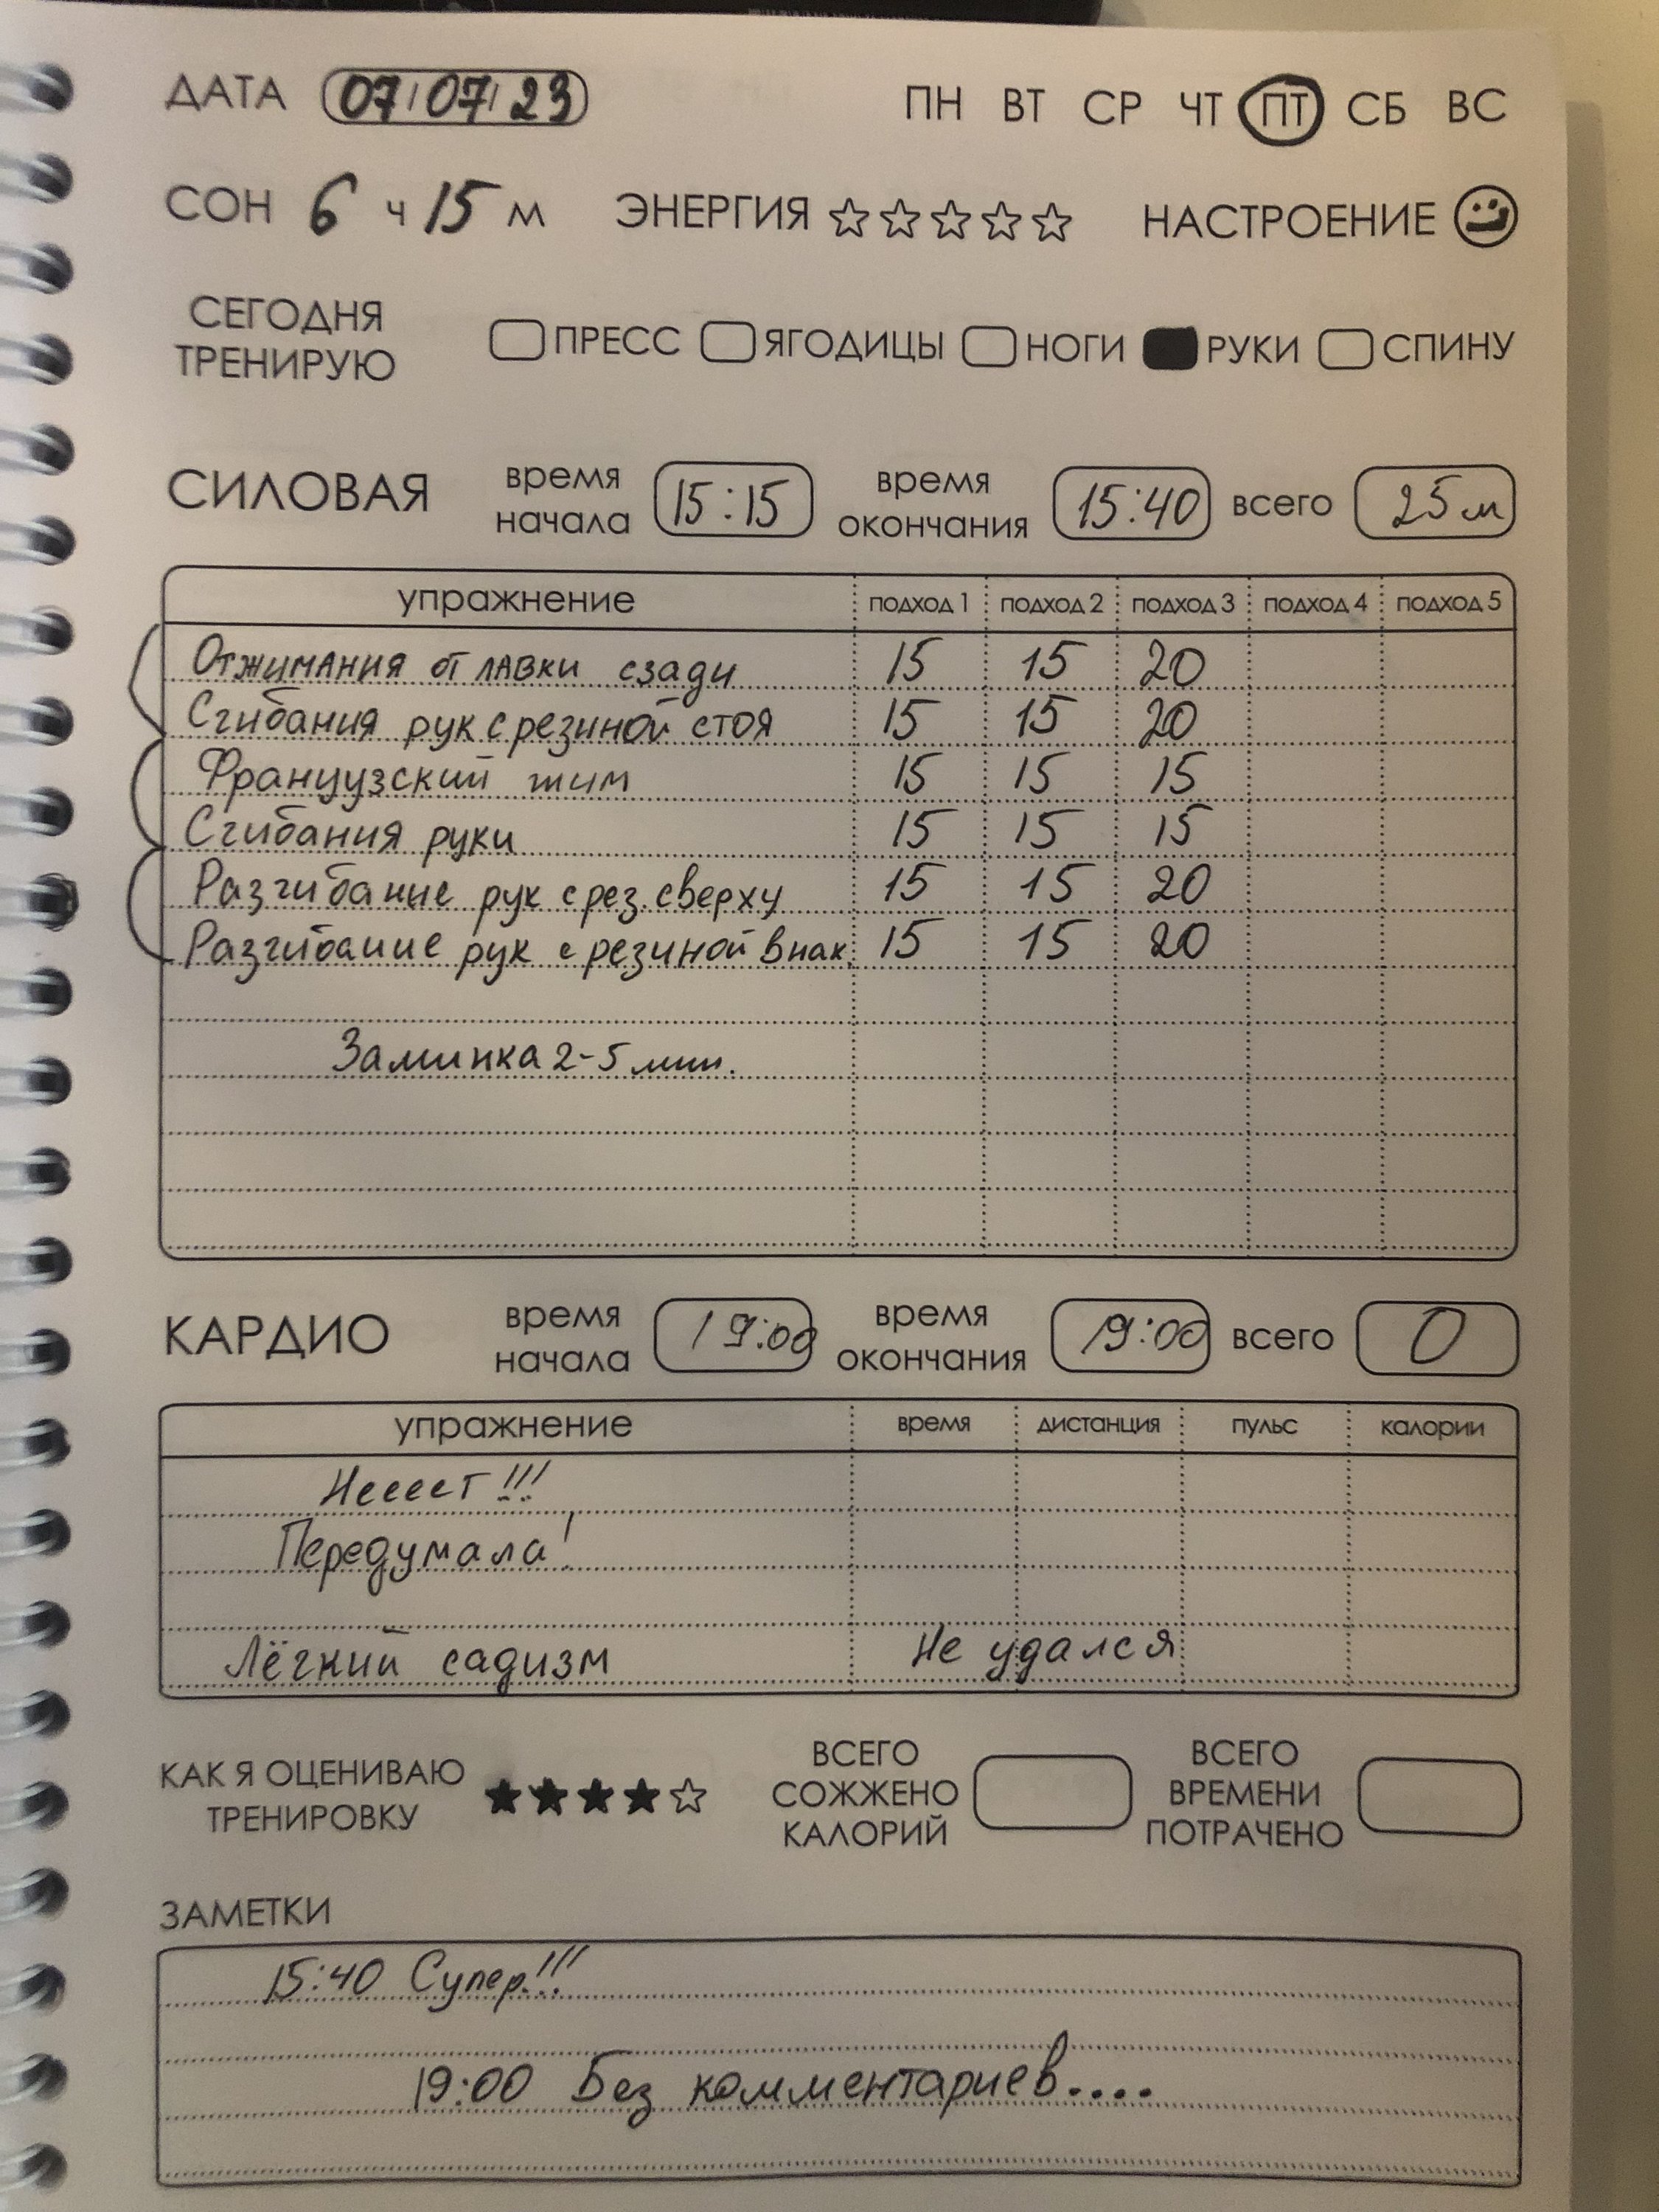 ДАТА 07/07/23 ПН ВТ СР ЧТ ПТ СБ ВС
СОН 6 ч 15 м ЭНЕРГИЯ НАСТРОЕНИЕ
СЕГОДНЯ
ТРЕНИРУЮ
ПРЕСС ЯГОДИЦЫ НОГИ РУКИ СПИНУ
СИЛОВАЯ
время
начала
15:15
время
окончания
15:40
всего 25м
упражнение подход 1 подход 2 подход 3 подход 4 подход 5
Отжимания от лавки сзади 15 15 20
Сгибания рук с резиной стоя 15 15 20
Французский жим 15 15 15
Сгибания руки 15 15 15
Разгибание рук с рез. сверху 15 15 20
Разгибание рук с резиной в нак. 15 15 20
Заминка 2-5 мин.
КАРДИО
время
начала
19:00
время
окончания
19:00
всего 0
упражнение время дистанция пульс калории
Нееет!!!
Передумала!
Лёгкий садизм Не удался
КАК Я ОЦЕНИВАЮ
ТРЕНИРОВКУ
ВСЕГО
СОЖЖЕНО
КАЛОРИЙ
ВСЕГО
ВРЕМЕНИ
ПОТРАЧЕНО
ЗАМЕТКИ
15:40 Супер!!!
19:00 Без комментариев....